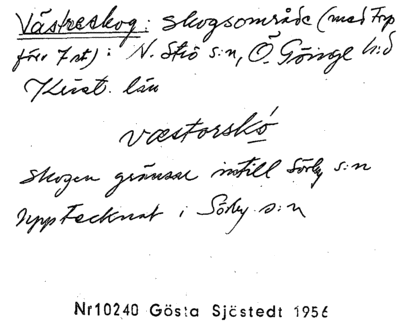 Västreskog: skogsområde (med Frp
före 7 st) i N. Strö s:n, Ö. Göinge h:d
Krist. län
væstorskó
skogen gränsar intill Sörby s:n
upptecknat i Sörby s:n
Nr10240 Gösta Sjöstedt 1956